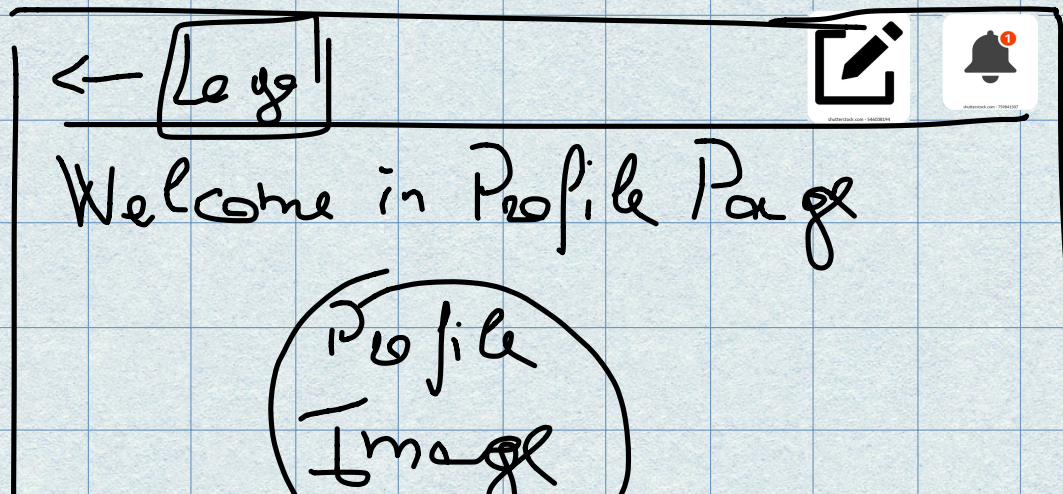 Logo
1
shutterstock.com · 546038194
shutterstock.com · 759841507
Welcome in Profile Page
Profile
Image